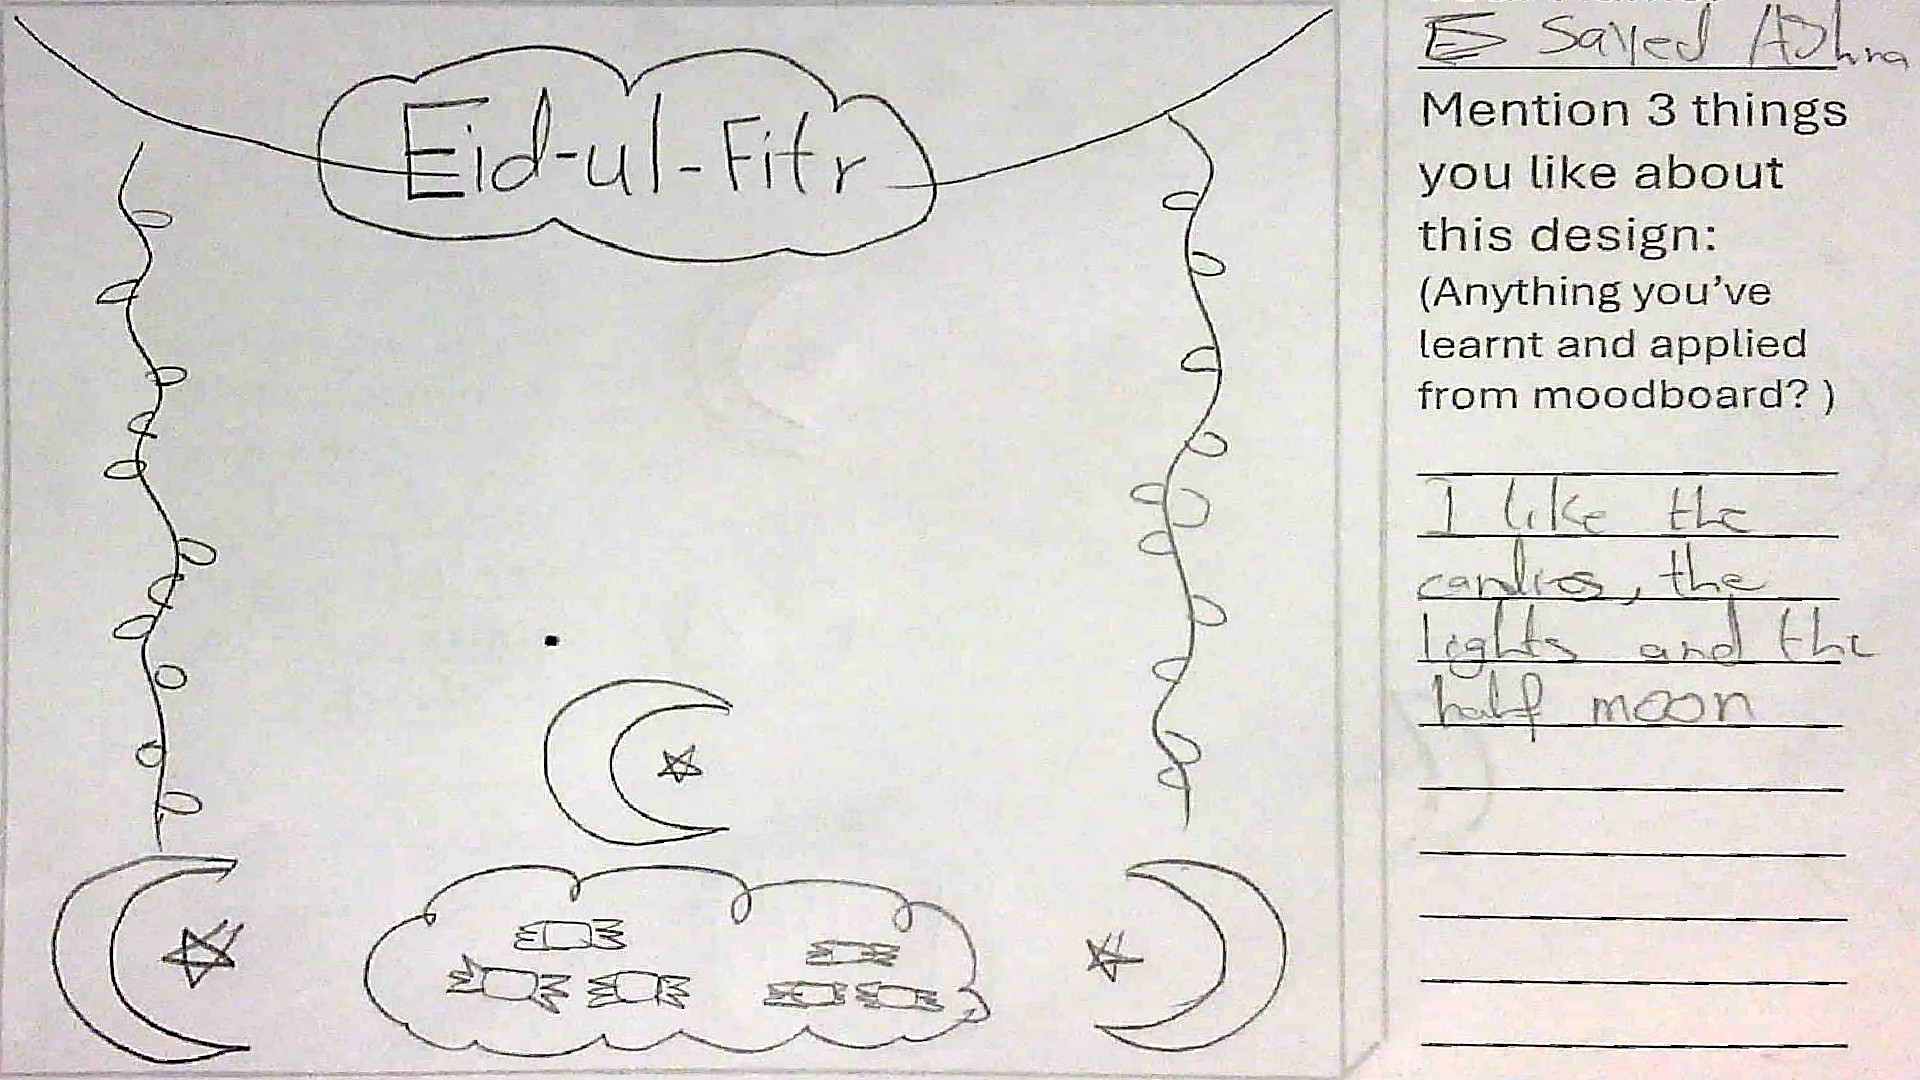 Eid-ul-Fitr
E Sayed
Mention 3 things
you like about
this design:
(Anything you've
learnt and applied
from moodboard? )
I like the
candies, the
lights and the
half moon